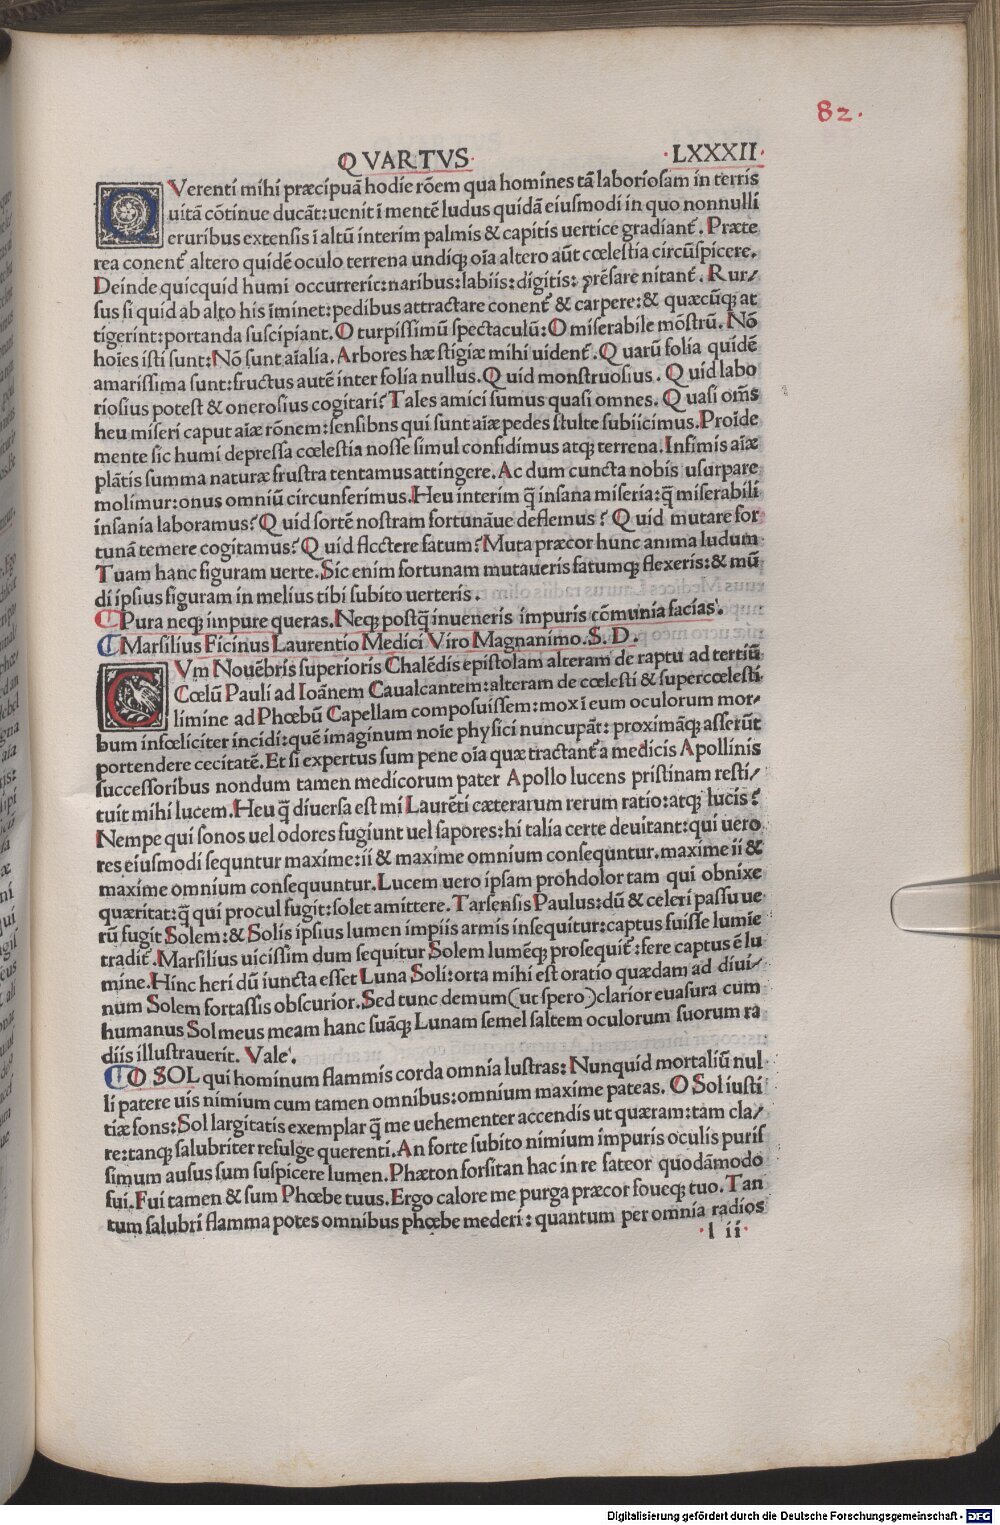 82.
QVARTVS. .LXXXII.
QVerenti mihi præcipuā hodie rōem qua homines tā laboriosam in terris
uitā cōtinue ducāt:uenit ī mentē ludus quidā eiusmodi in quo nonnulli
eruribus extensis ī altū interim palmis & capitis uertice gradiant᷑. Præte
rea conent᷑ altero quidē oculo terrena undiqꝫ oīa altero aūt cœlestia circūspicere.
Deinde quicquid humi occurrerit:naribus:labiis:digitis: p̄rēsare nitant᷑. Rur/
sus si quid ab alto his īminet:pedibus attractare conent᷑ & carpere:& quæcūqꝫ at
tigerint:portanda suscipiant.O turpissimū spectaculū:O miserabile mōstrū. Nō
hoīes isti sunt:Nō sunt aīalia. Arbores hæ stigiæ mihi uident᷑.Quarū folia quidē
amarissima sunt:fructus autē inter folia nullus.Quid monstruosius. Quid labo
riosius potest & onerosius cogitari?Tales amici sumus quasi omnes.Quasi om̄s
heu miseri caput aīæ rōnem:sensibns qui sunt aīæ pedes stulte subiicimus.Proīde
mente sic humi depressa cœlestia nosse simul confidimus atqꝫ terrena.Infimis aīæ
plātis summa naturæ frustra tentamus attingere.Ac dum cuncta nobis usurpare
molimur:onus omniū circunferimus.Heu interim q̄ insana miseria:q̄ miserabili
insania laboramus?Quid sortē nostram fortunāue deflemus? Quid mutare for
tunā temere cogitamus?Quid flectere fatum?Muta præcor hunc anima ludum
Tuam hanc figuram uerte.Sic enim fortunam mutaueris fatumqꝫ flexeris:& mū
di ipsius figuram in melius tibi subito uerteris.
Pura neqꝫ inpure queras.Neqꝫ postq̄ inueneris impuris cōmunia facias.
Marsilius Ficinus Laurentio Medici Viro Magnanimo.S.D.
CVm Nouēbris superioris Chalēdis epistolam alteram de raptu ad tertiū
Cœlū Pauli ad Ioānem Caualcantem:alteram de cœlesti & supercœlesti
limine ad Phœbū Capellam composuissem:mox ī eum oculorum mor/
bum infœliciter incidi:quē imaginum noīe physici nuncupāt: proximāqꝫ asserūt
portendere cecitatē.Et si expertus sum pene oīa quæ tractant᷑ a medicis Apollinis
successoribus nondum tamen medicorum pater Apollo lucens pristinam resti/
tuit mihi lucem.Heu q̄ diuersa est mi Laurēti cæterarum rerum ratio:atqꝫ lucis?
Nempe qui sonos uel odores fugiunt uel sapores:hi talia certe deuitant:qui uero
res eiusmodi sequntur maxime:ii & maxime omnium consequntur.maxime ii &
maxime omnium consequuntur.Lucem uero ipsam prohdolor tam qui obnixe
quæritat:q̄ qui procul fugit:solet amittere. Tarsensis Paulus:dū & celeri passu ue
rū fugit Solem:& Solis ipsius lumen impiis armis insequitur:captus fuisse lumīe
tradit᷑.Marsilius uicissim dum sequitur Solem lumēqꝫ prosequit᷑:fere captus ē lu
mine.Hinc heri dū iuncta esset Luna Soli:orta mihi est oratio quædam ad diui/
num Solem fortassis obscurior.Sed tunc demum(ut spero)clarior euasura cum
humanus Sol meus meam hanc suāqꝫ Lunam semel saltem oculorum suorum ra
diis illustrauerit. Vale.
O SOL qui hominum flammis corda omnia lustras: Nunquid mortaliū nul
li patere uis nimium cum tamen omnibus:omnium maxime pateas. O Sol iusti
tiæ fons:Sol largitatis exemplar q̄ me uehementer accendis ut quæram:tam cla/
re:tanqꝫ salubriter refulge querenti.An forte subito nimium impuris oculis puris
simum ausus sum suspicere lumen.Phæton forsitan hac in re fateor quodāmodo
fui.Fui tamen & sum Phœbe tuus.Ergo calore me purga præcor foueqꝫ tuo.Tan
tum salubri flamma potes omnibus phœbe mederi:quantum per omnia radios
.l ii.
Digitalisierung gefördert durch die Deutsche Forschungsgemeinschaft - DFG